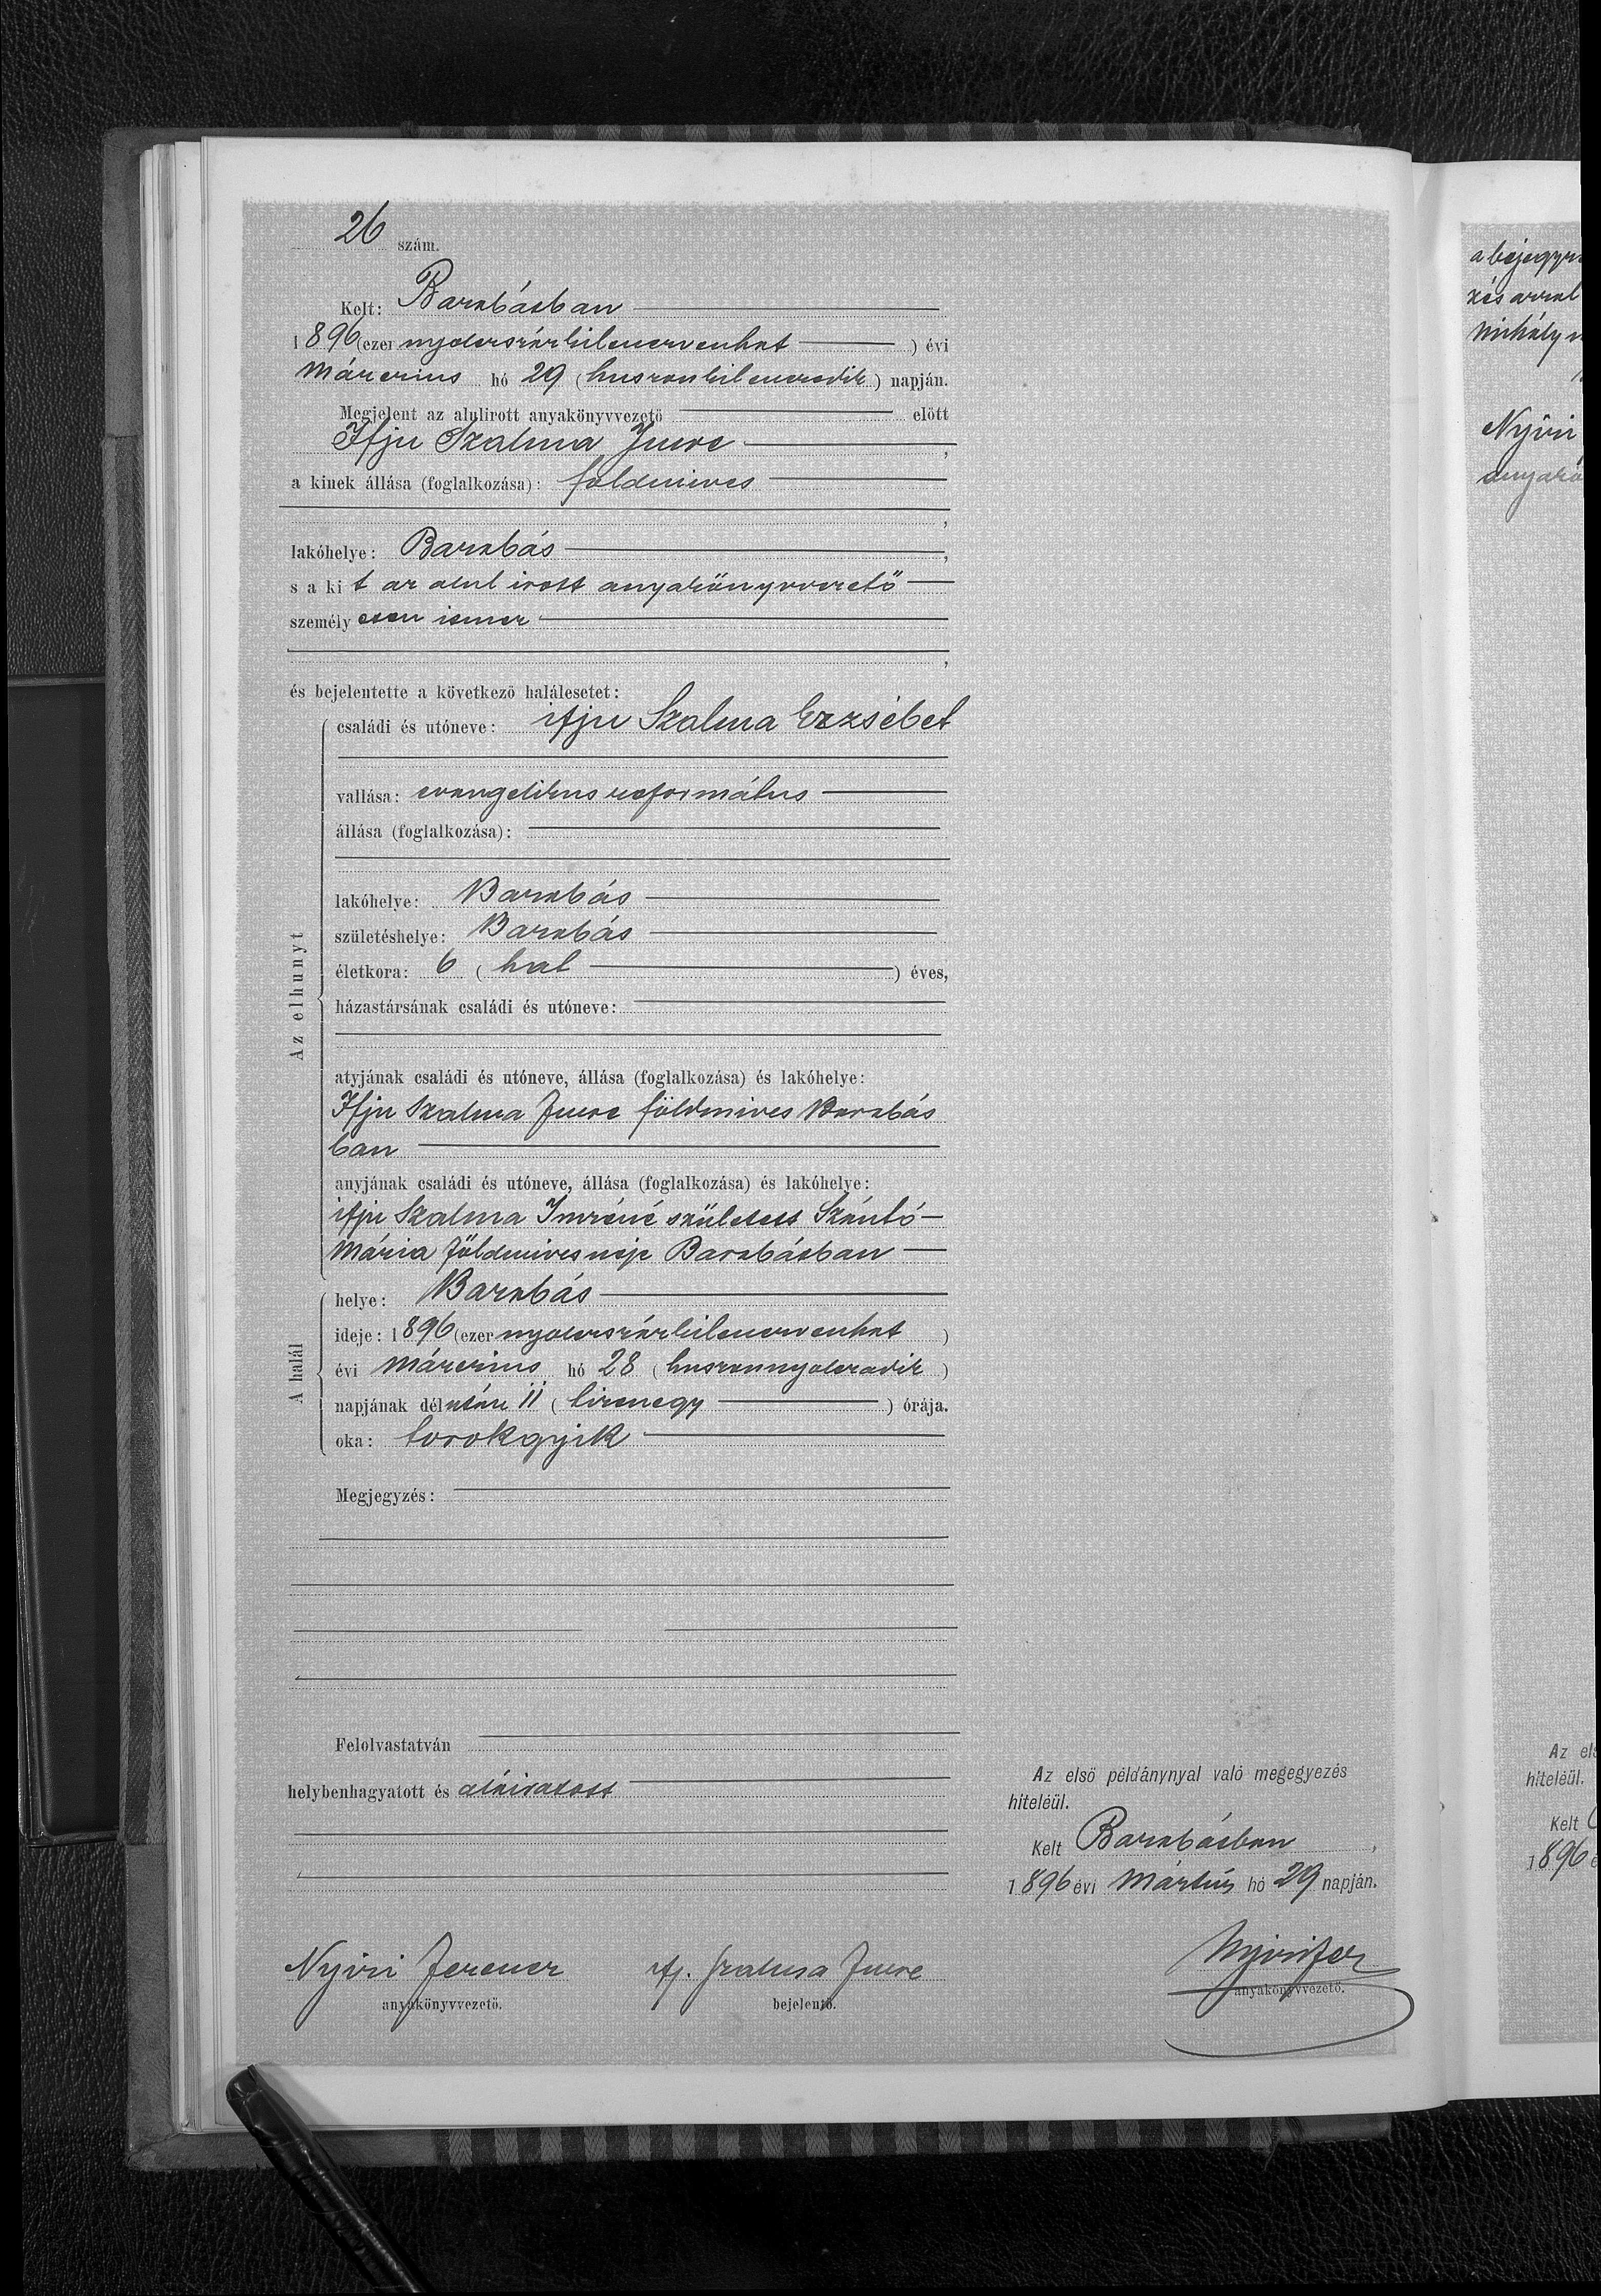 26 szám.
Kelt: Barabásban
1896 (ezer nyolczszázkilenczvenhat) évi
Márczius hó 29 (huszonkilenczedik) napján.
Megjelent az alulirott anyakönyvvezető előtt
Ifju Szalma Imre,
a kinek állása (foglalkozása): földmives
,
lakóhelye: Barabás,
s a kit az alul irott anyakönyvvezető
személyesen ismer
,
és bejelentette a következő halálesetet:
Az elhunyt
családi és utóneve: ifju Szalma Erzsébet
vallása: evangelikus református
állása (foglalkozása):
lakóhelye: Barabás
születéshelye: Barabás
életkora: 6 (hat) éves,
házastársának családi és utóneve:
atyjának családi és utóneve, állása (foglalkozása) és lakóhelye:
Ifju Szalma Imre földmives Barabás
ban
anyjának családi és utóneve, állása (foglalkozása) és lakóhelye:
ifju Szalma Imréné született Szántó
Mária földmives neje Barabásban
A halál
helye: Barabás
ideje: 1896 (ezer nyolczszázkilenczvenhat)
évi Márczius hó 28 (huszonnyolczadik)
napjának délután 11 (tizenegy) órája.
oka: torokgyik
Megjegyzés:
Felolvastatván
helybenhagyatott és aláiratott
Nyiri Ferencz
anyakönyvvezető.
ifj. Szalma Imre
bejelentő.
Az első példánynyal való megegyezés
hiteléül.
Kelt Barabásban,
1896 évi Mártius hó 29 napján.
Nyiri Fer
anyakönyvvezető.
a bejegyz
zés arral
Mihály
Nyiri
anyakö
Az els
hiteléül.
Kelt
1896 é